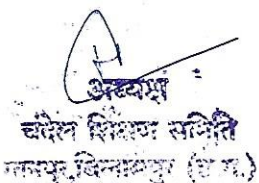 अध्यक्ष
चंदेल शिक्षण समिति
बिलासपुर (छ.ग.)